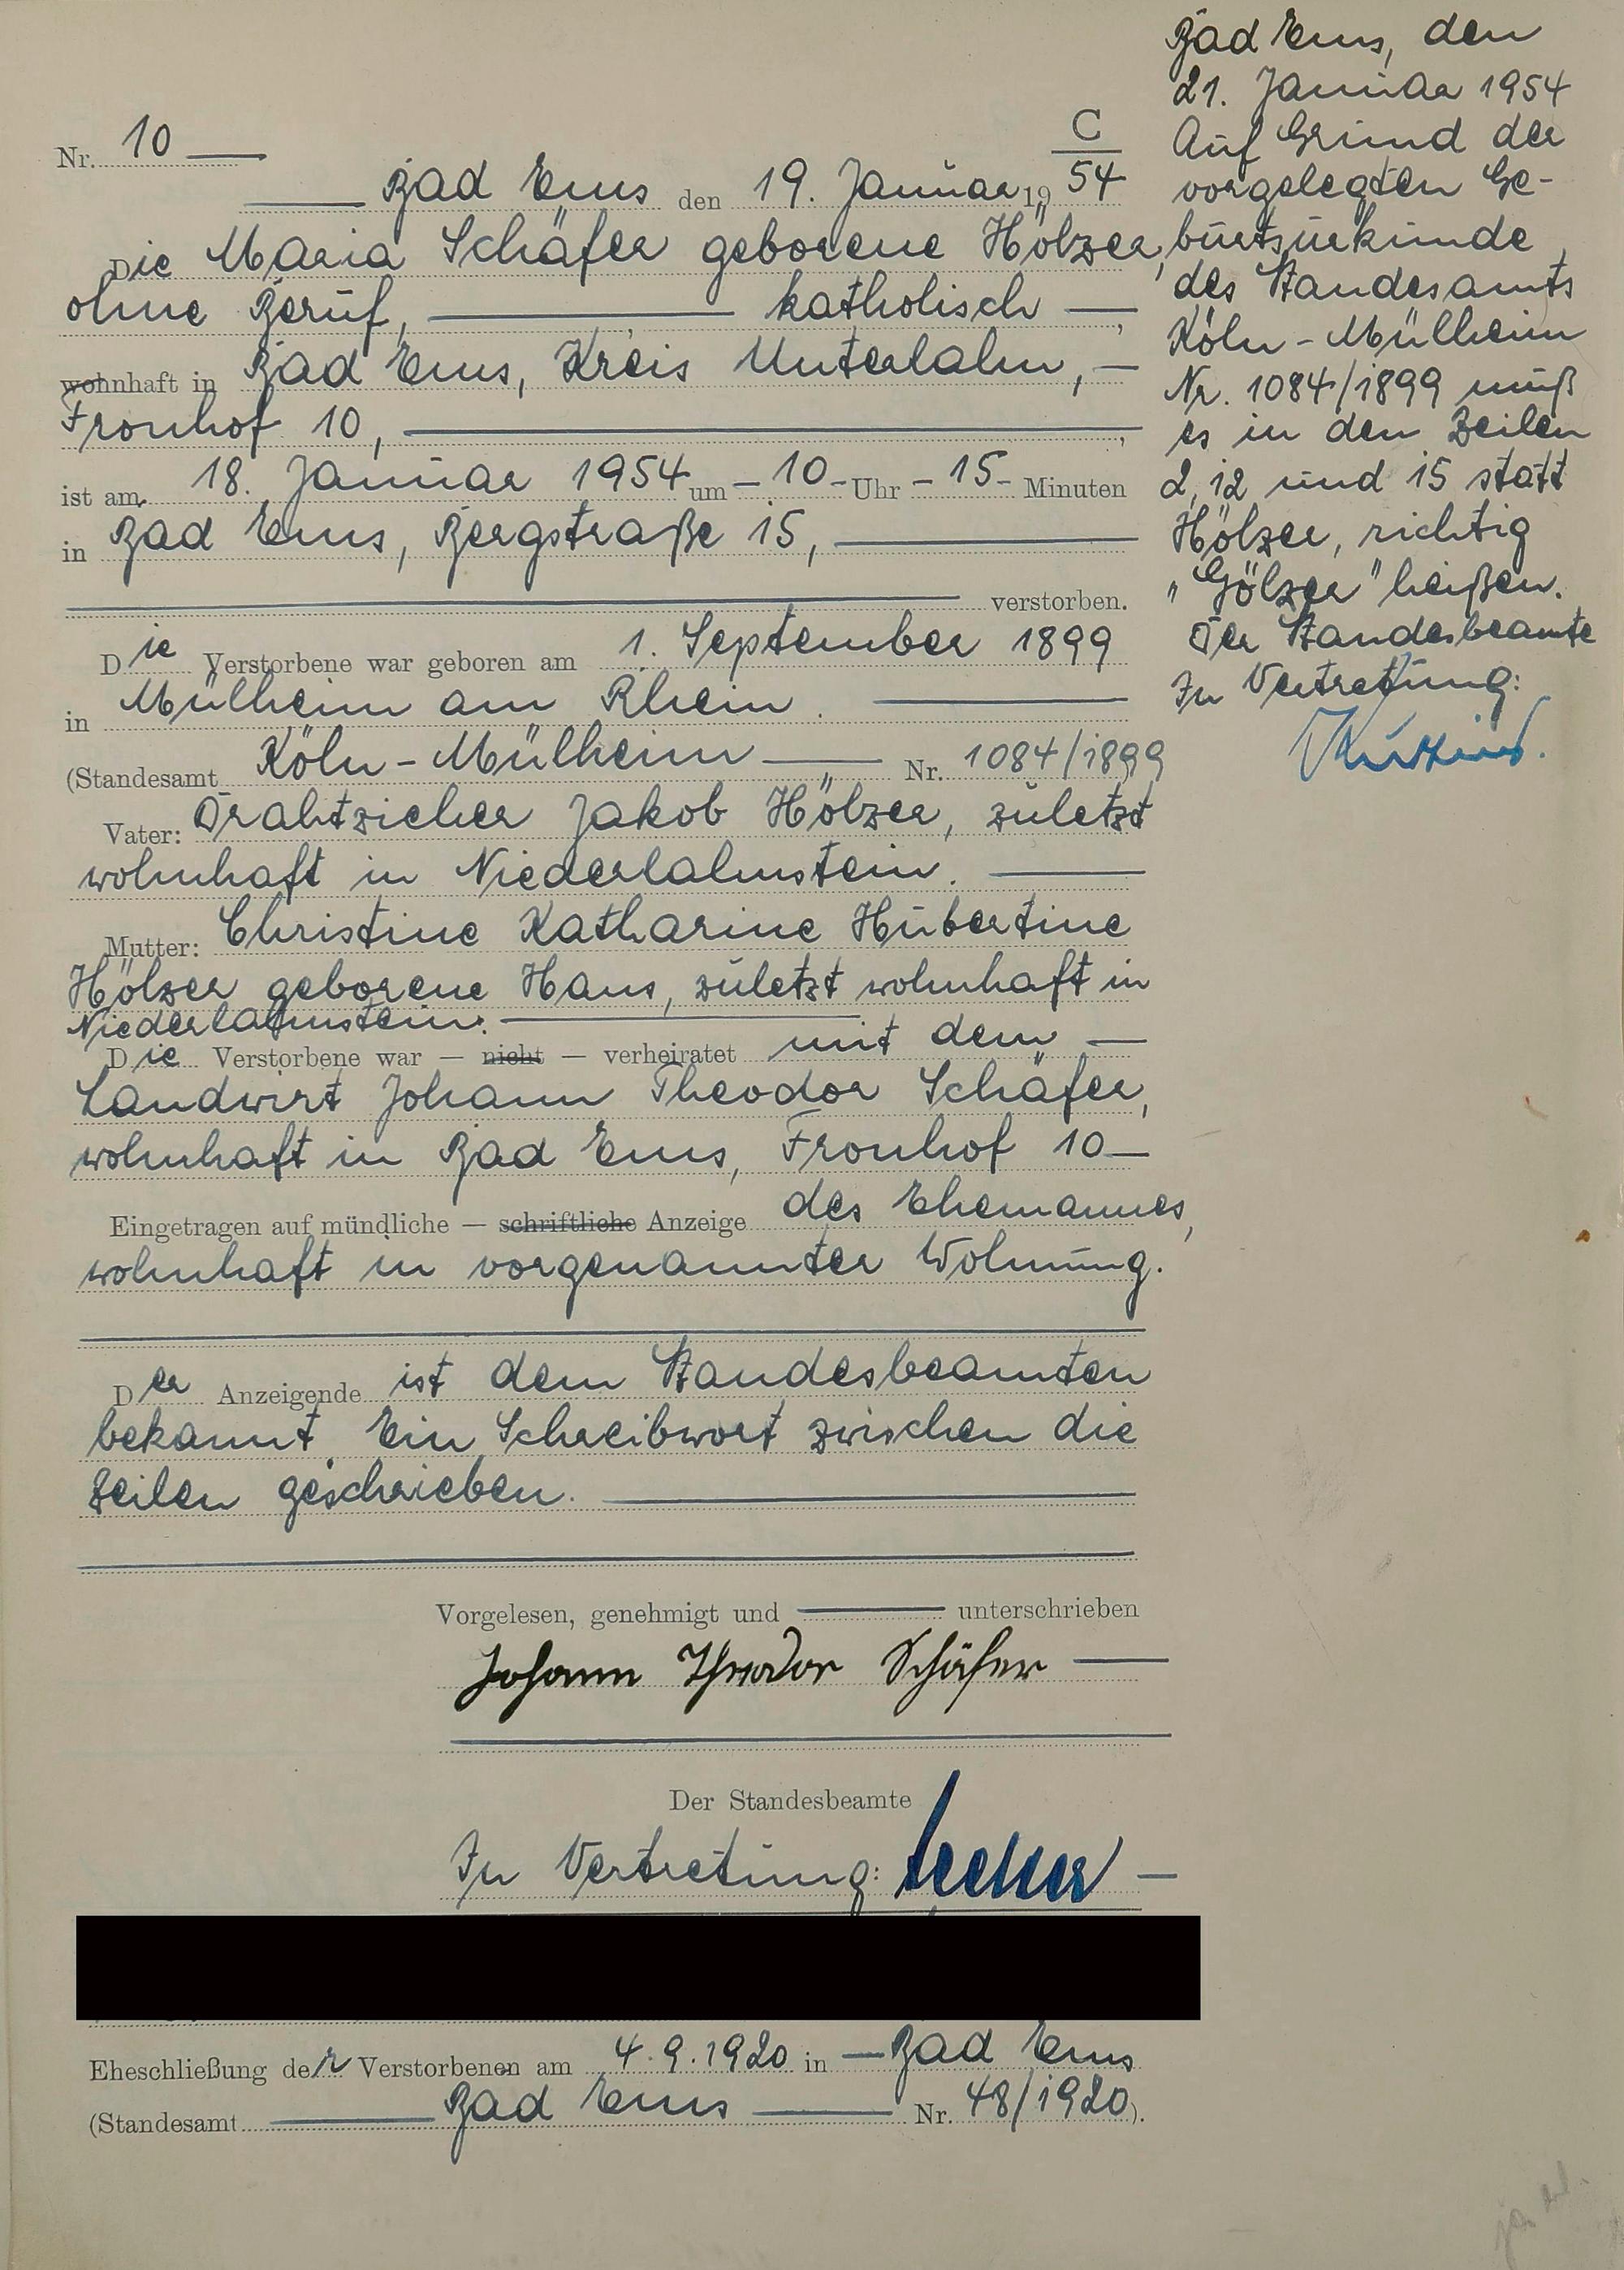 C
Nr. 10
Bad Ems den 19. Januar 1954
Die Maria Schäfer geborene Hölzer,
ohne Beruf, katholisch ,
wohnhaft in Bad Ems, Kreis Unterlahn,
Fronhof 10, ,
ist am 18. Januar 1954 um - 10 - Uhr - 15 - Minuten
in Bad Ems, Bergstraße 15,
verstorben.
Die Verstorbene war geboren am 1. September 1899
in Mülheim am Rhein.
(Standesamt Köln-Mülheim Nr. 1084/1899
Vater: Drahtzieher Jakob Hölzer, zuletzt
wohnhaft in Niederlahnstein.
Mutter: Christine Katharine Hubertine
Hölzer geborene Hans, zuletzt wohnhaft in
Niederlahnstein.
Die Verstorbene war — nicht — verheiratet mit dem
Landwirt Johann Theodor Schäfer,
wohnhaft in Bad Ems, Fronhof 10
Eingetragen auf mündliche — schriftliche Anzeige des Ehemannes,
wohnhaft in vorgenannter Wohnung.
Der Anzeigende ist dem Standesbeamten
bekannt. Ein Schreibwort zwischen die
Zeilen geschrieben.
Vorgelesen, genehmigt und unterschrieben
Johann Theodor Schäfer
Der Standesbeamte
In Vertretung:
Eheschließung der Verstorbenen am 4.9.1920 in Bad Ems
(Standesamt Bad Ems Nr. 48/1920).
Bad Ems, den
21. Januar 1954
Auf Grund der
vorgelegten Ge-
burtsurkunde
des Standesamts
Köln-Mülheim
Nr. 1084/1899 muß
es in den Zeilen
2, 12 und 15 statt
Hölzer, richtig
"Gölzer" heißen.
Der Standesbeamte
In Vertretung: